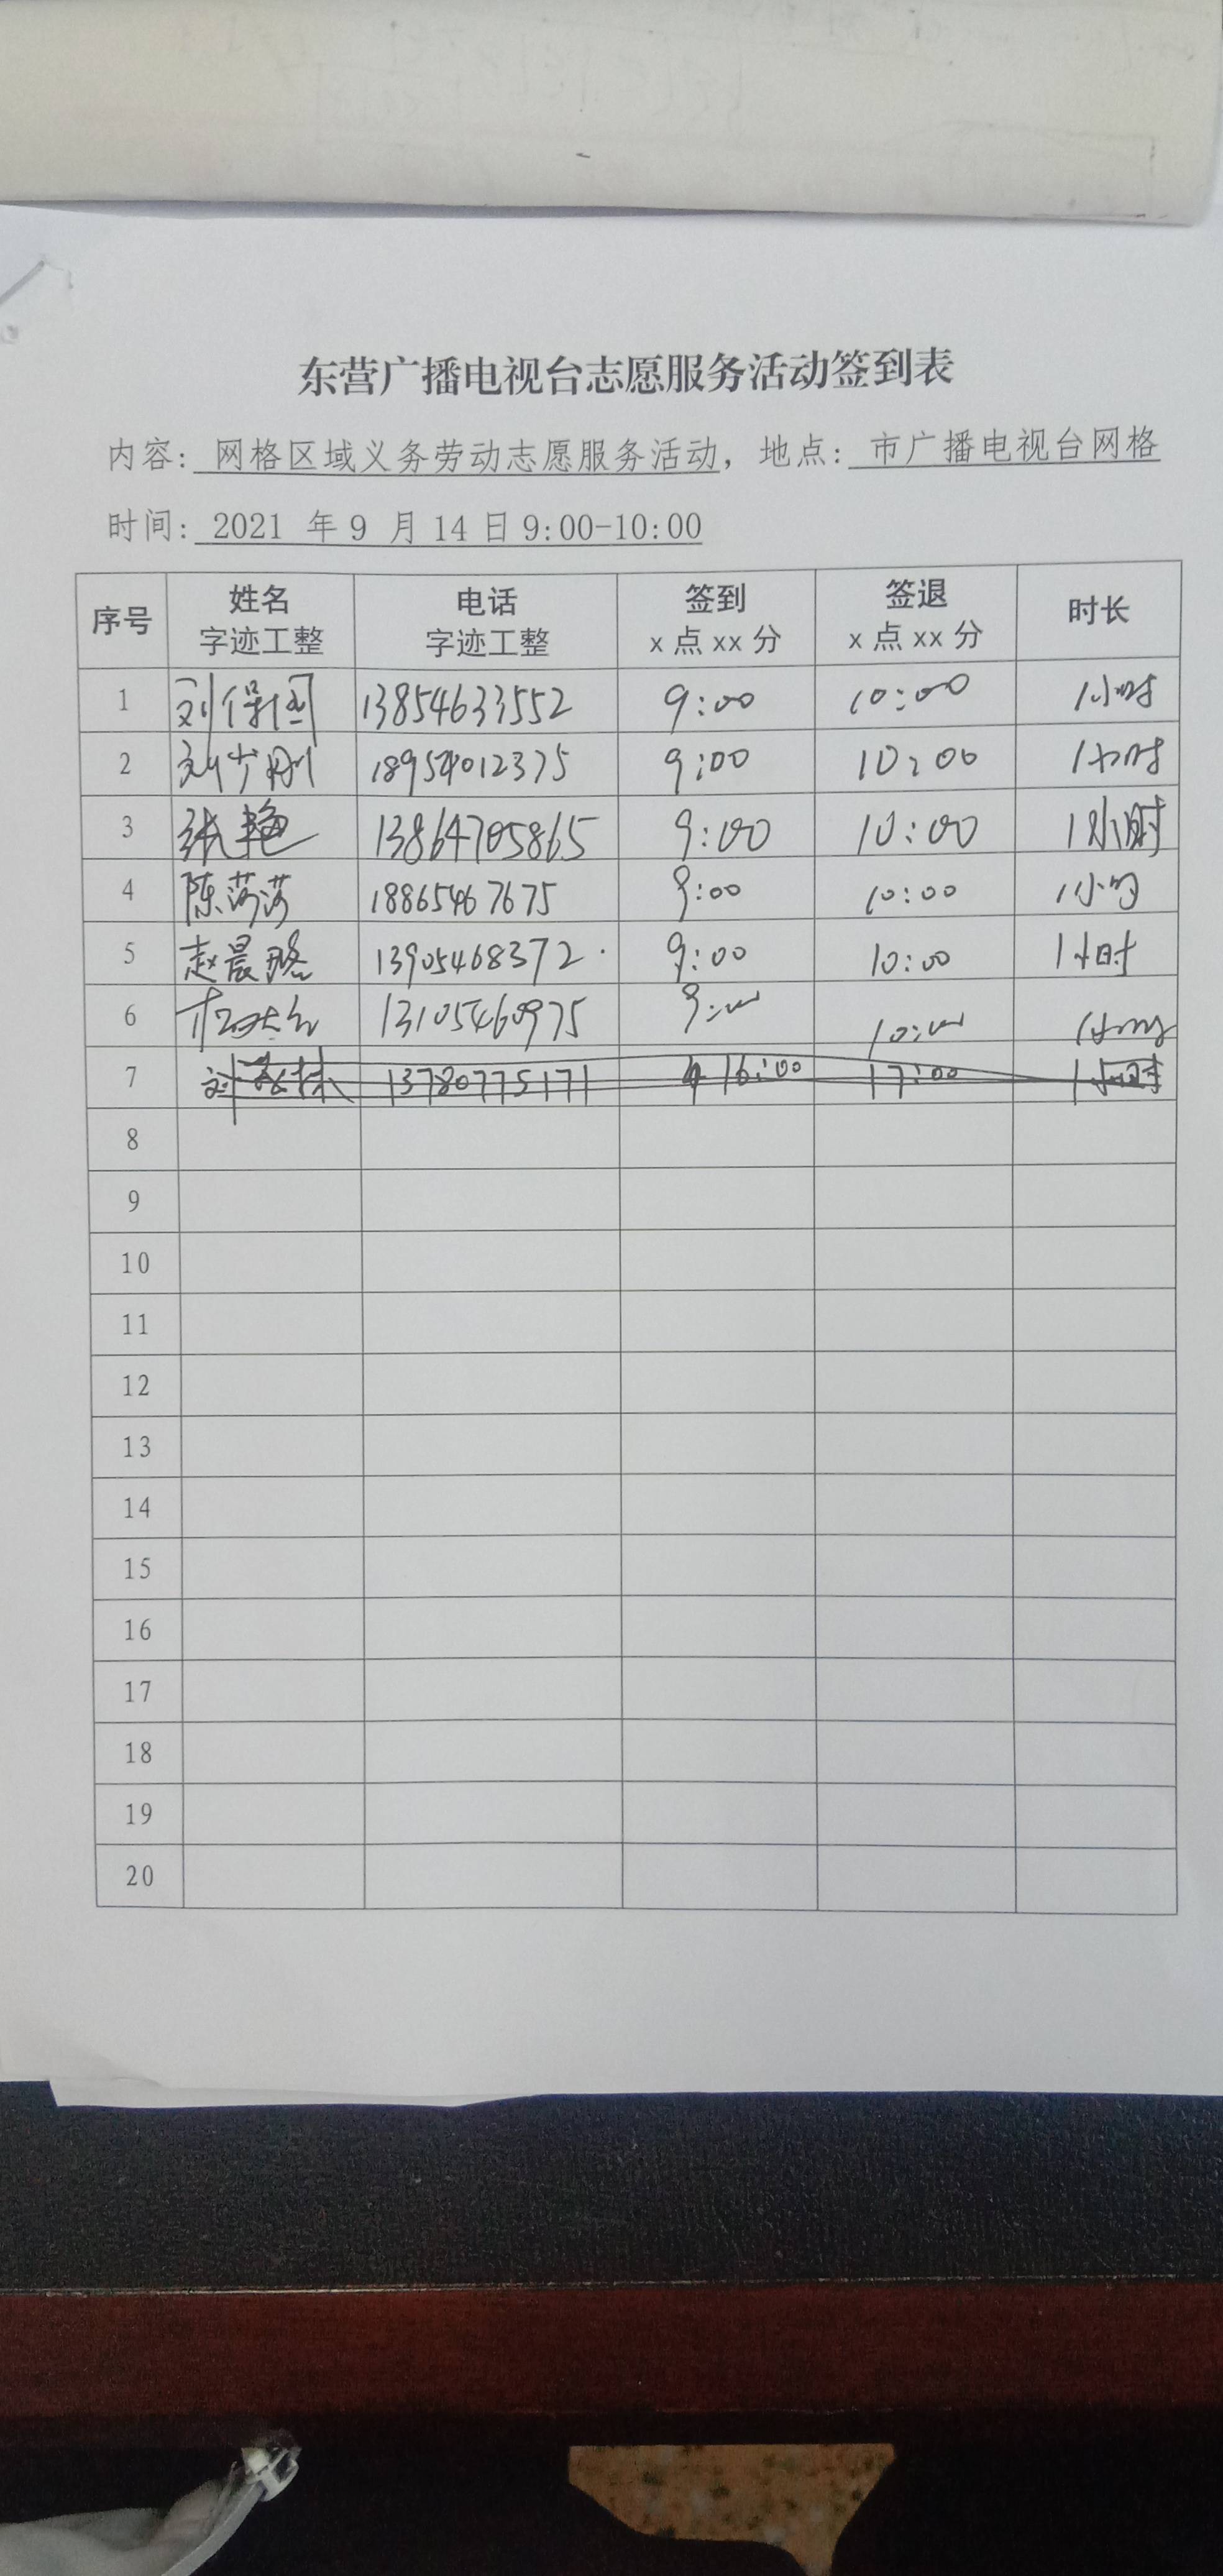 东营广播电视台志愿服务活动签到表
内容: 网格区域义务劳动志愿服务活动, 地点: 市广播电视台网格
时间: 2021 年 9 月 14 日 9:00-10:00
序号 姓名 字迹工整 电话 字迹工整 签到 x 点 xx 分 签退 x 点 xx 分 时长
1 刘保国 13854633552 9:00 10:00 1小时
2 刘少刚 18954012375 9:00 10:00 1小时
3 张艳 13864705865 9:00 10:00 1小时
4 陈莎莎 18865467675 9:00 10:00 1小时
5 赵晨 13905468372 9:00 10:00 1小时
6 13105460975 9:00 10:00 1小时
7 刘 13780775171 16:00 17:00 1小时
8
9
10
11
12
13
14
15
16
17
18
19
20